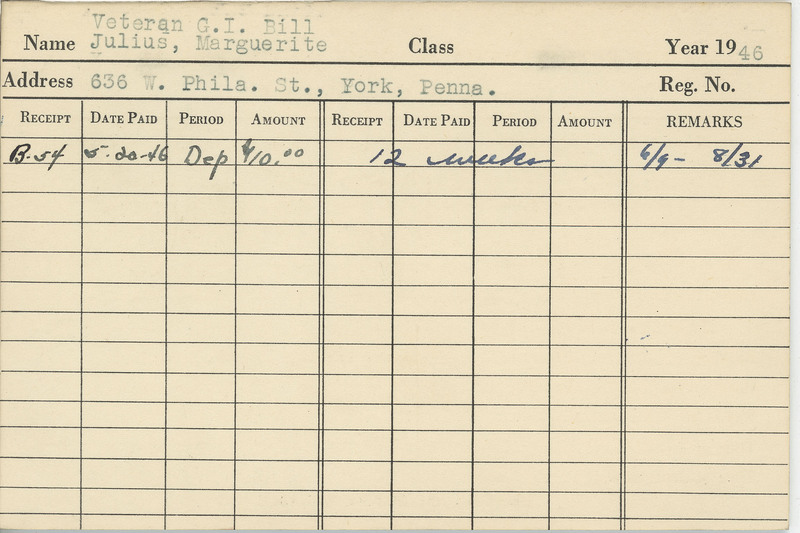 Veteran G.I. Bill
Name Julius, Marguerite Class Year 1946
Address 636 W. Phila. St., York, Penna. Reg. No.
RECEIPT DATE PAID PERIOD AMOUNT RECEIPT DATE PAID PERIOD AMOUNT REMARKS
B-54 5-20-46 Dep $10.00 12 weeks 6/9- 8/31